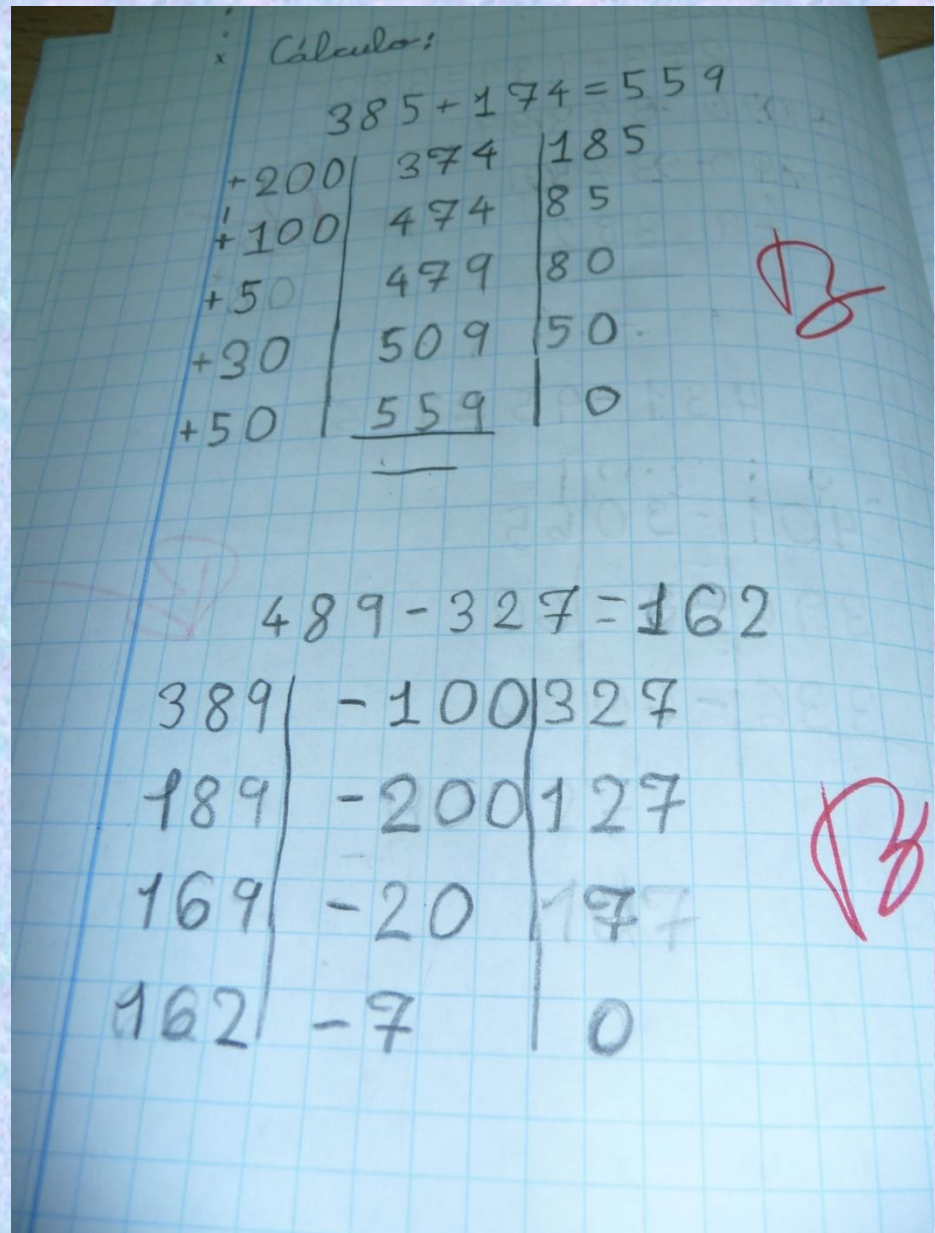 Cálculo:
385+174=559
+200 | 374 | 185
+100 | 474 | 85
+5 | 479 | 80
+30 | 509 | 50
+50 | 559 | 0
B
489-327=162
389 | -100 | 327
189 | -200 | 127
169 | -20 | 7
162 | -7 | 0
B